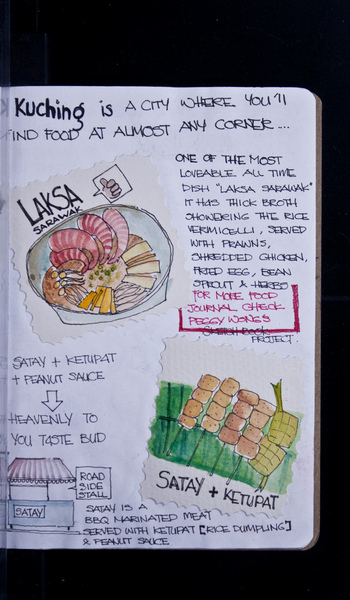 Kuching is A CITY WHERE YOU'll
FIND FOOD AT ALMOST ANY CORNER ....
LAKSA
SARAWAK
ONE OF THE MOST
LOVEABLE ALL TIME
DISH "LAKSA SARAWAK"
IT HAS THICK BROTH
SHOWERING THE RICE
VERMICELLI, SERVED
WITH PRAWNS,
SHREDDED CHICKEN,
FRIED EGG, BEAN
SPROUT & HERBS
FOR MORE FOOD
JOURNAL CHECK
PEGGY WONG'S
SKETCHBOOK
PROJECT.
SATAY + KETUPAT
+ PEANUT SAUCE
HEAVENLY TO
YOU TASTE BUD
ROAD
SIDE
STALL
SATAY
SATAY + KETUPAT
SATAY IS A
BBQ MARINATED MEAT
SERVED WITH KETUPAT [RICE DUMPLING]
& PEANUT SAUCE